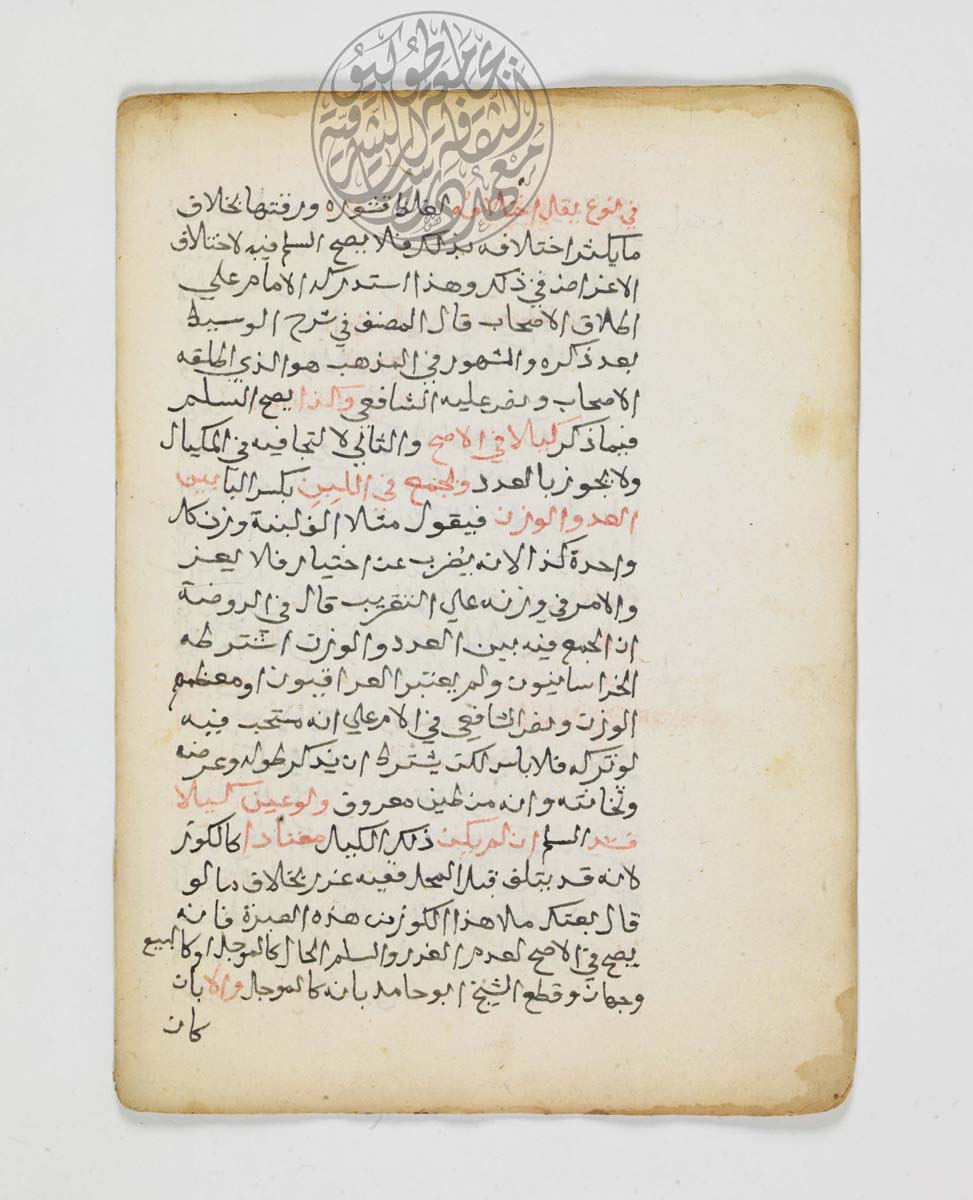 في نوع يقل اختلافه بغلظ قشوره ورقتها بخلاف
ما يكثر اختلافه بذلك فلا يصح السلم فيه لاختلاف
الاغراض في ذلك وهذا استدركه الامام علي
اطلاق الاصحاب قال المصنف في شرح الوسيط
بعد ذكره والمشهور في المذهب هو الذي اطلقه
الاصحاب ونص عليه الشافعي وكذا يصح السلم
فيما ذكر كيلا في الاصح والثاني لا لتجافيه في المكيال
ولا يجوز بالعدد ويجمع في اللبن بكسر البا بين
العد والوزن فيقول مثلا الف لبنة وزن كل
واحدة كذا لانه يضرب عن اختيار فلا يعز
والامر في وزنه علي التقريب قال في الروضة
ان الجمع فيه بين العدد والوزن اشترطه
الخراسانيون ولم يعتبر العراقيون او معظمهم
الوزن ونص الشافعي في الام علي انه مستحب فيه
لو تركه فلا باس لكن يشترط ان يذكر طوله وعرضه
وثخانته وانه من طين معروف ولو عين كيلا
فسد السلم ان لم يكن ذلك الكيل معتادا كالكوز
لانه قد يتلف قبل المحل ففيه غرر بخلاف ما لو
قال بعتك ملا هذا الكوز من هذه الصبرة فانه
يصح في الاصح لعدم الغرر والسلم الحال كالموجل او كالبيع
وجهان وقطع الشيخ ابو حامد بانه كالموجل والا بان
كان
معهد الثقافة والدراسات الشرقية
جامعة طوكيو